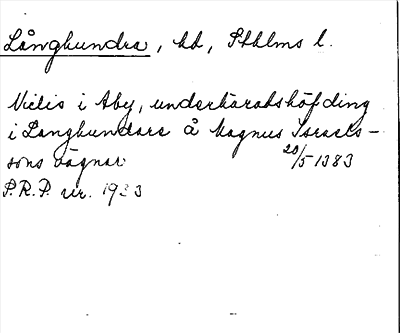 Långhundra, hd, Sthlms l.
Niclis i Aby, underhäradshöfding
i Langhundare å Magnus Israels-
sons vägnar 20/5 1383
P.R.P. nr. 1933